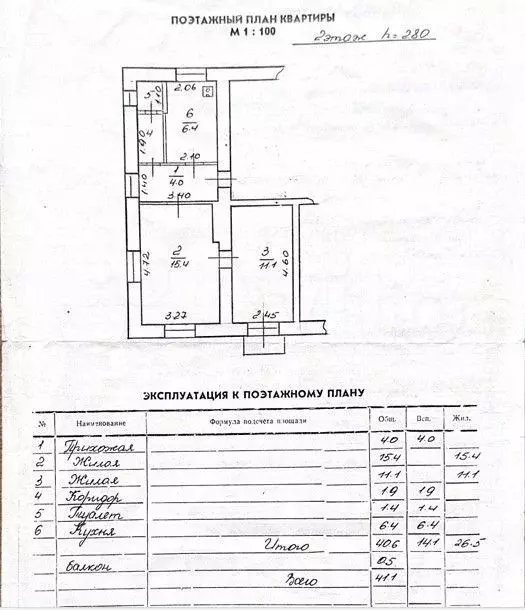 ПОЭТАЖНЫЙ ПЛАН КВАРТИРЫ
М 1 : 100
2этаж h=280
2.06
5
1.10
6
6.4
4
1.90
2.10
1
4.0
1.40
3.40
2
15.4
4.72
3
11.1
4.60
3.27
2.45
ЭКСПЛУАТАЦИЯ К ПОЭТАЖНОМУ ПЛАНУ
№ Наименование Формула подсчета площади Общ. Всп. Жил.
1 Прихожая 4.0 4.0
2 Жилая 15.4 15.4
3 Жилая 11.1 11.1
4 Коридор 1.9 1.9
5 Туалет 1.4 1.4
6 Кухня 6.4 6.4
Итого 40.6 14.1 26.5
балкон 0.5
Всего 41.1